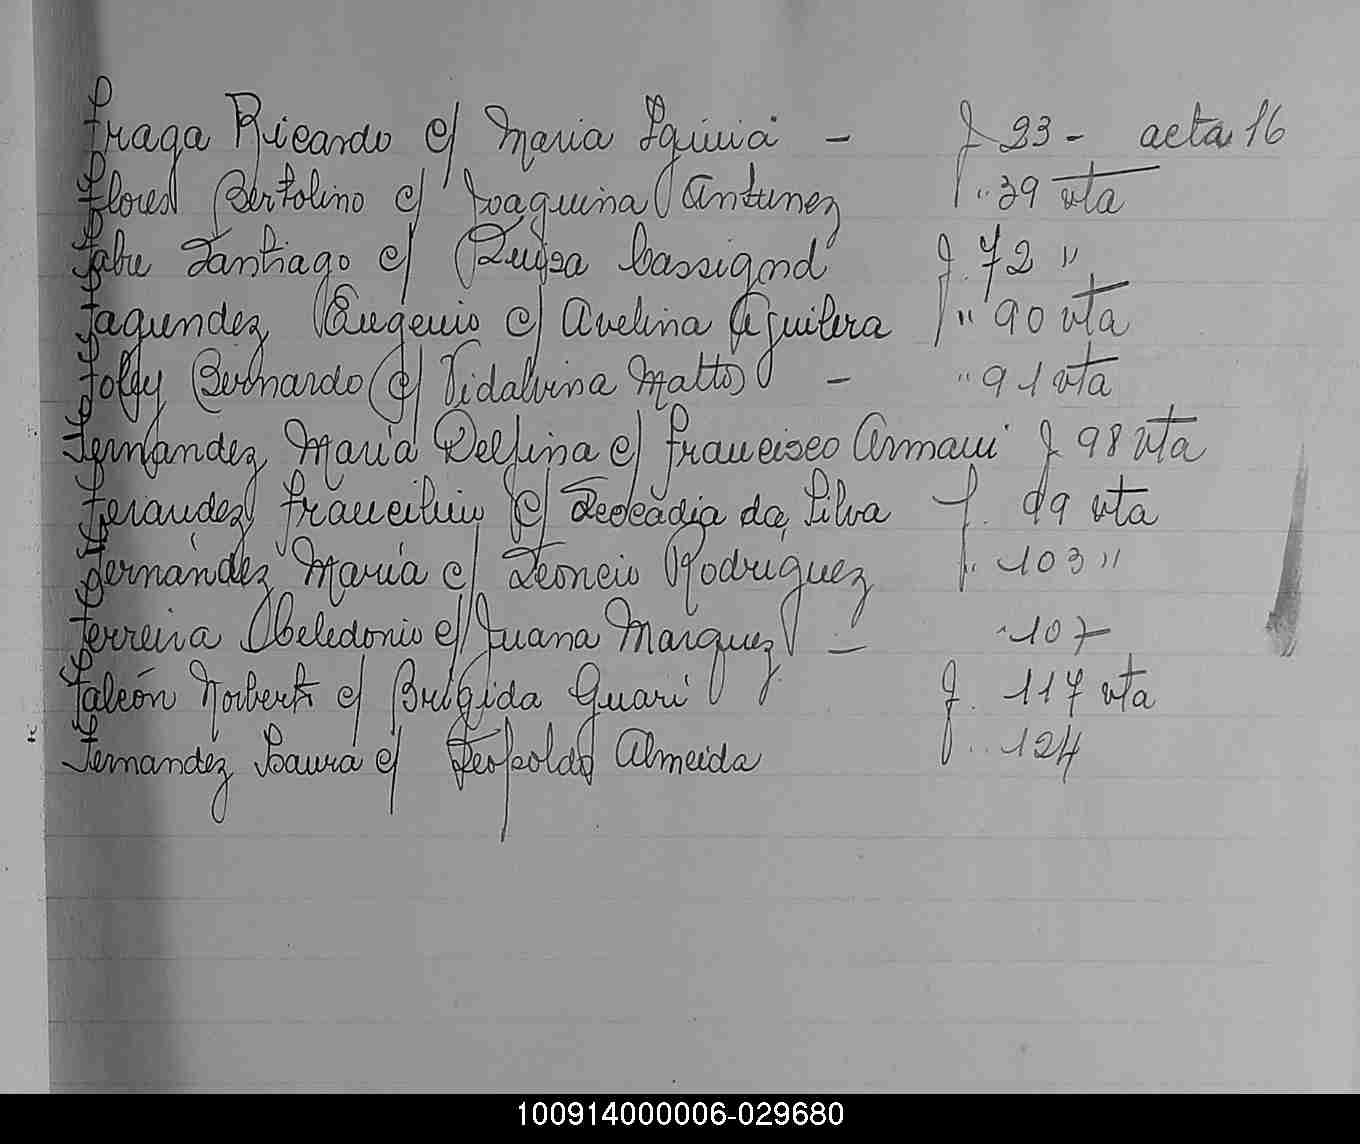 Fraga Ricardo c/ Maria - f 23 - acta 16
Flores Bertolino c/ Joaquina Antunez f " 39 vta
Fabre Santiago c/ Luisa Cassignol f. 72 "
Fagundez Eugenio c/ Avelina Aguilera f " 90 vta
Bernardo c/ Vidalvina Matto - " 91 vta
Fernandez María Delfina c/ Francisco f 98 vta
c/ Leocadia da Silva f. 99 vta
Fernández María c/ Leoncio Rodríguez f. 103 "
Ferreira Celedonio c/ Juana Marquez - " 107
Falcón Norberto c/ Brígida Guarí f. 117 vta
Fernandez Laura c/ Leopoldo Almeida f. " 124
100914000006-029680